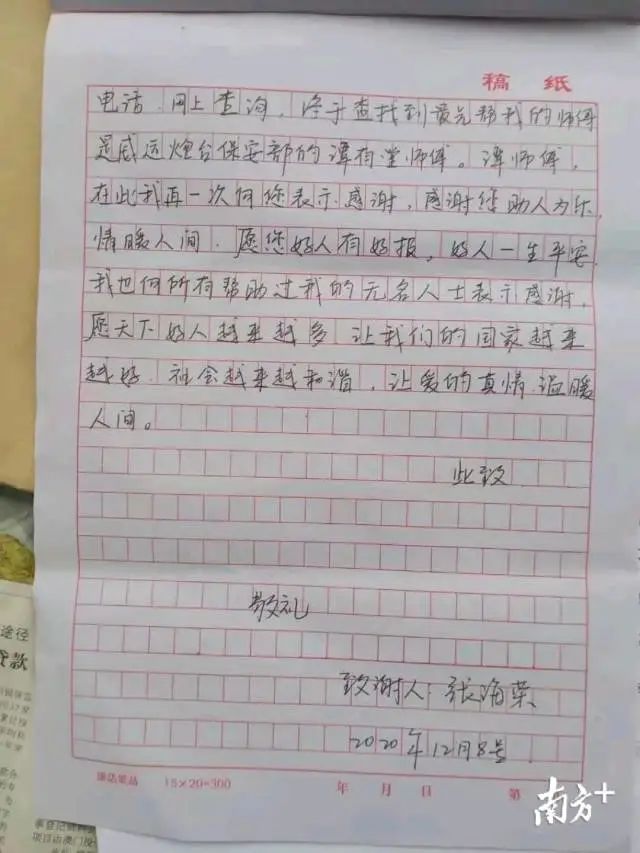 稿 纸
电话、网上查询，终于查找到最先帮我的师傅
是威远炮台保安部的谭有堂师傅。谭师傅，
在此我再一次向您表示感谢，感谢您助人为乐，
情暖人间，愿您好人有好报，好人一生平安，
我也向所有帮助过我的无名人士表示感谢，
愿天下好人越来越多，让我们的国家越来
越好，社会越来越和谐，让爱的真情温暖
人间。
此致
敬礼
致谢人：张海荣
2020年12月8号
15×20=300
年 月 日 第
途径
贷款
南方+